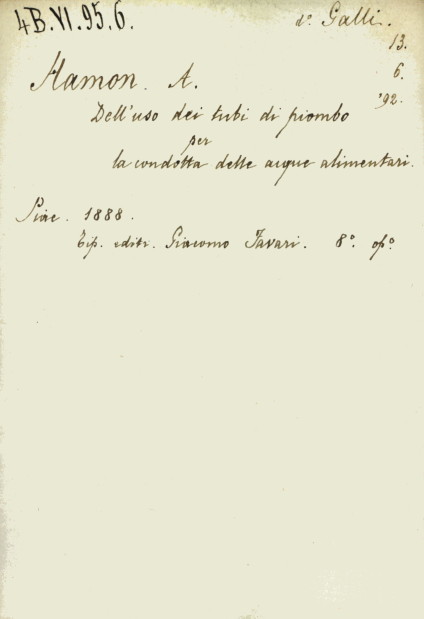 4B.VI.95.6.
d.º Galli.
13.
6.
'92.
Hamon. A.
Dell'uso dei tubi di piombo
per
la condotta delle acque alimentari.
1888.
Tip. editr. Giacomo Favari. 8º. opº.